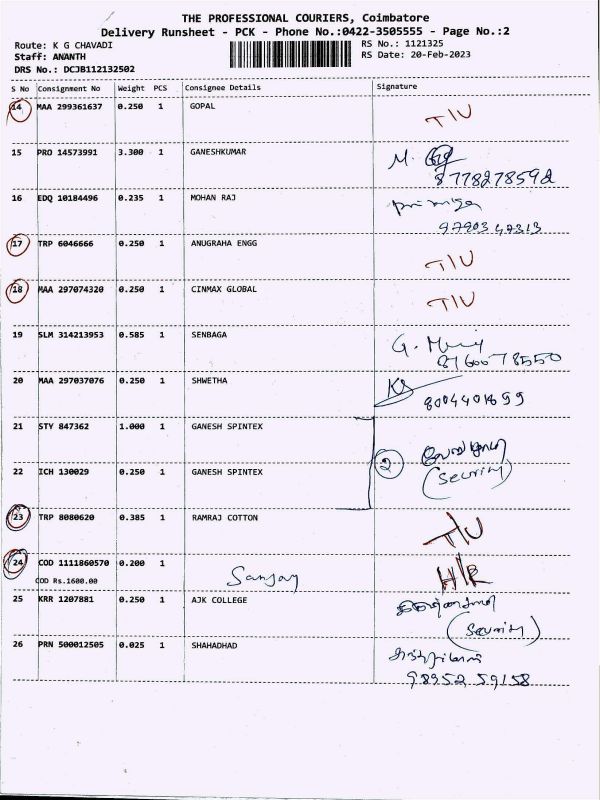 THE PROFESSIONAL COURIERS, Coimbatore
Delivery Runsheet - PCK - Phone No.:0422-3505555 - Page No.:2
Route: K G CHAVADI RS No.: 1121325
Staff: ANANTH RS Date: 20-Feb-2023
DRS No.: DCJB112132502
S No Consignment No Weight PCS Consignee Details Signature
14 MAA 299361637 0.250 1 GOPAL T/U
15 PRO 14573991 3.300 1 GANESHKUMAR M.
8778278592
16 EDQ 10184496 0.235 1 MOHAN RAJ
17 TRP 6046666 0.250 1 ANUGRAHA ENGG T/U
18 MAA 297074320 0.250 1 CINMAX GLOBAL T/U
19 SLM 314213953 0.585 1 SENBAGA G.
8760078550
20 MAA 297037076 0.250 1 SHWETHA
21 STY 847362 1.000 1 GANESH SPINTEX
22 ICH 130029 0.250 1 GANESH SPINTEX 2 (Security)
23 TRP 8080620 0.385 1 RAMRAJ COTTON T/U
24 COD 1111860570 0.200 1 Sanjay H/R
COD Rs.1600.00
25 KRR 1207881 0.250 1 AJK COLLEGE
(Security)
26 PRN 500012505 0.025 1 SHAHADHAD
98952 59158